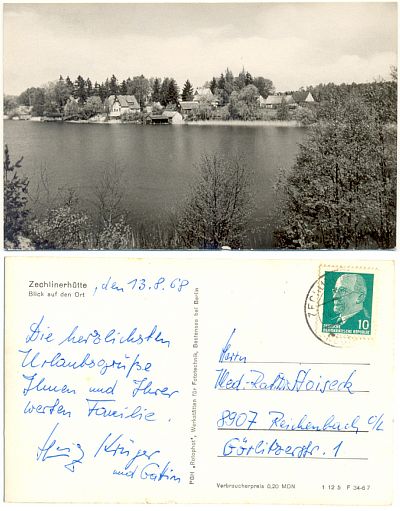 Zechlinerhütte
Blick auf den Ort
, den 13.8.68
Die herzlichsten
Urlaubsgrüße
Ihnen und Ihrer
werten Familie.
Krüger
und Gattin
PGH „Rotophot", Werkstätten für Fototechnik, Bestensee bei Berlin
ZECHL
DEUTSCHE
DEMOKRATISCHE REPUBLIK
10
Herrn
Med.-Rat
8907 Reichenbach O/L
Görlitzerstr. 1
Verbraucherpreis 0,20 MDN
1 12 5 F 34-67